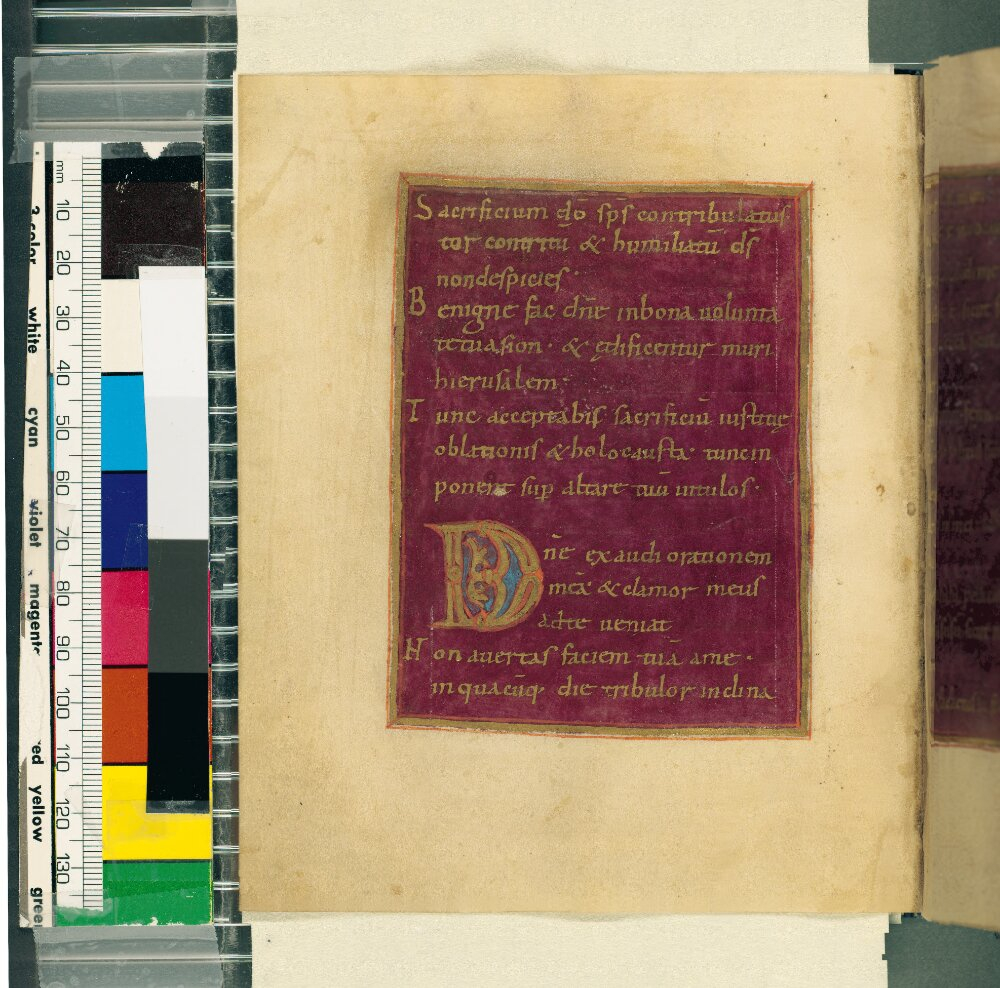 Sacrificium dō sp̄s contribulatus
cor contritū & humiliatū d̄s
nondespicies·
Benigne fac dn̄e inbona uolunta
tetuasion· & ędificentur muri
hierusalem·
Tunc acceptabis sacrificiū iustitię
oblationis & holocausta· tuncin
ponent sup altare tuū uitulos·
Dn̄e exaudi orationem
meā· & clamor meus
adte ueniat
Non auertas faciem tuā ame·
inquacūq· die tribulor inclina
mm 10 20 30 40 50 60 70 80 90 100 110 120 130
3-color white cyan violet magenta red yellow green